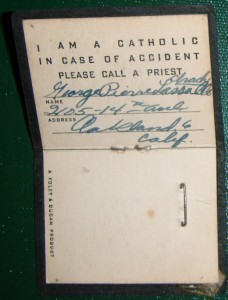 I AM A CATHOLIC
IN CASE OF ACCIDENT
PLEASE CALL A PRIEST
George Pierre
NAME
2105-14th Ave
ADDRESS
Oakland 6
Calif.
A FOLEY & DUGAN PRODUCT